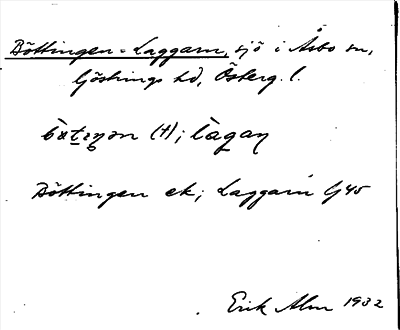 Böttingen-Laggarn, sjö i Åsbo sn,
Göstrings hd, Österg. l.
(†); làgan
Böttingen ek; Laggarn G 45
Erik Alm 1932